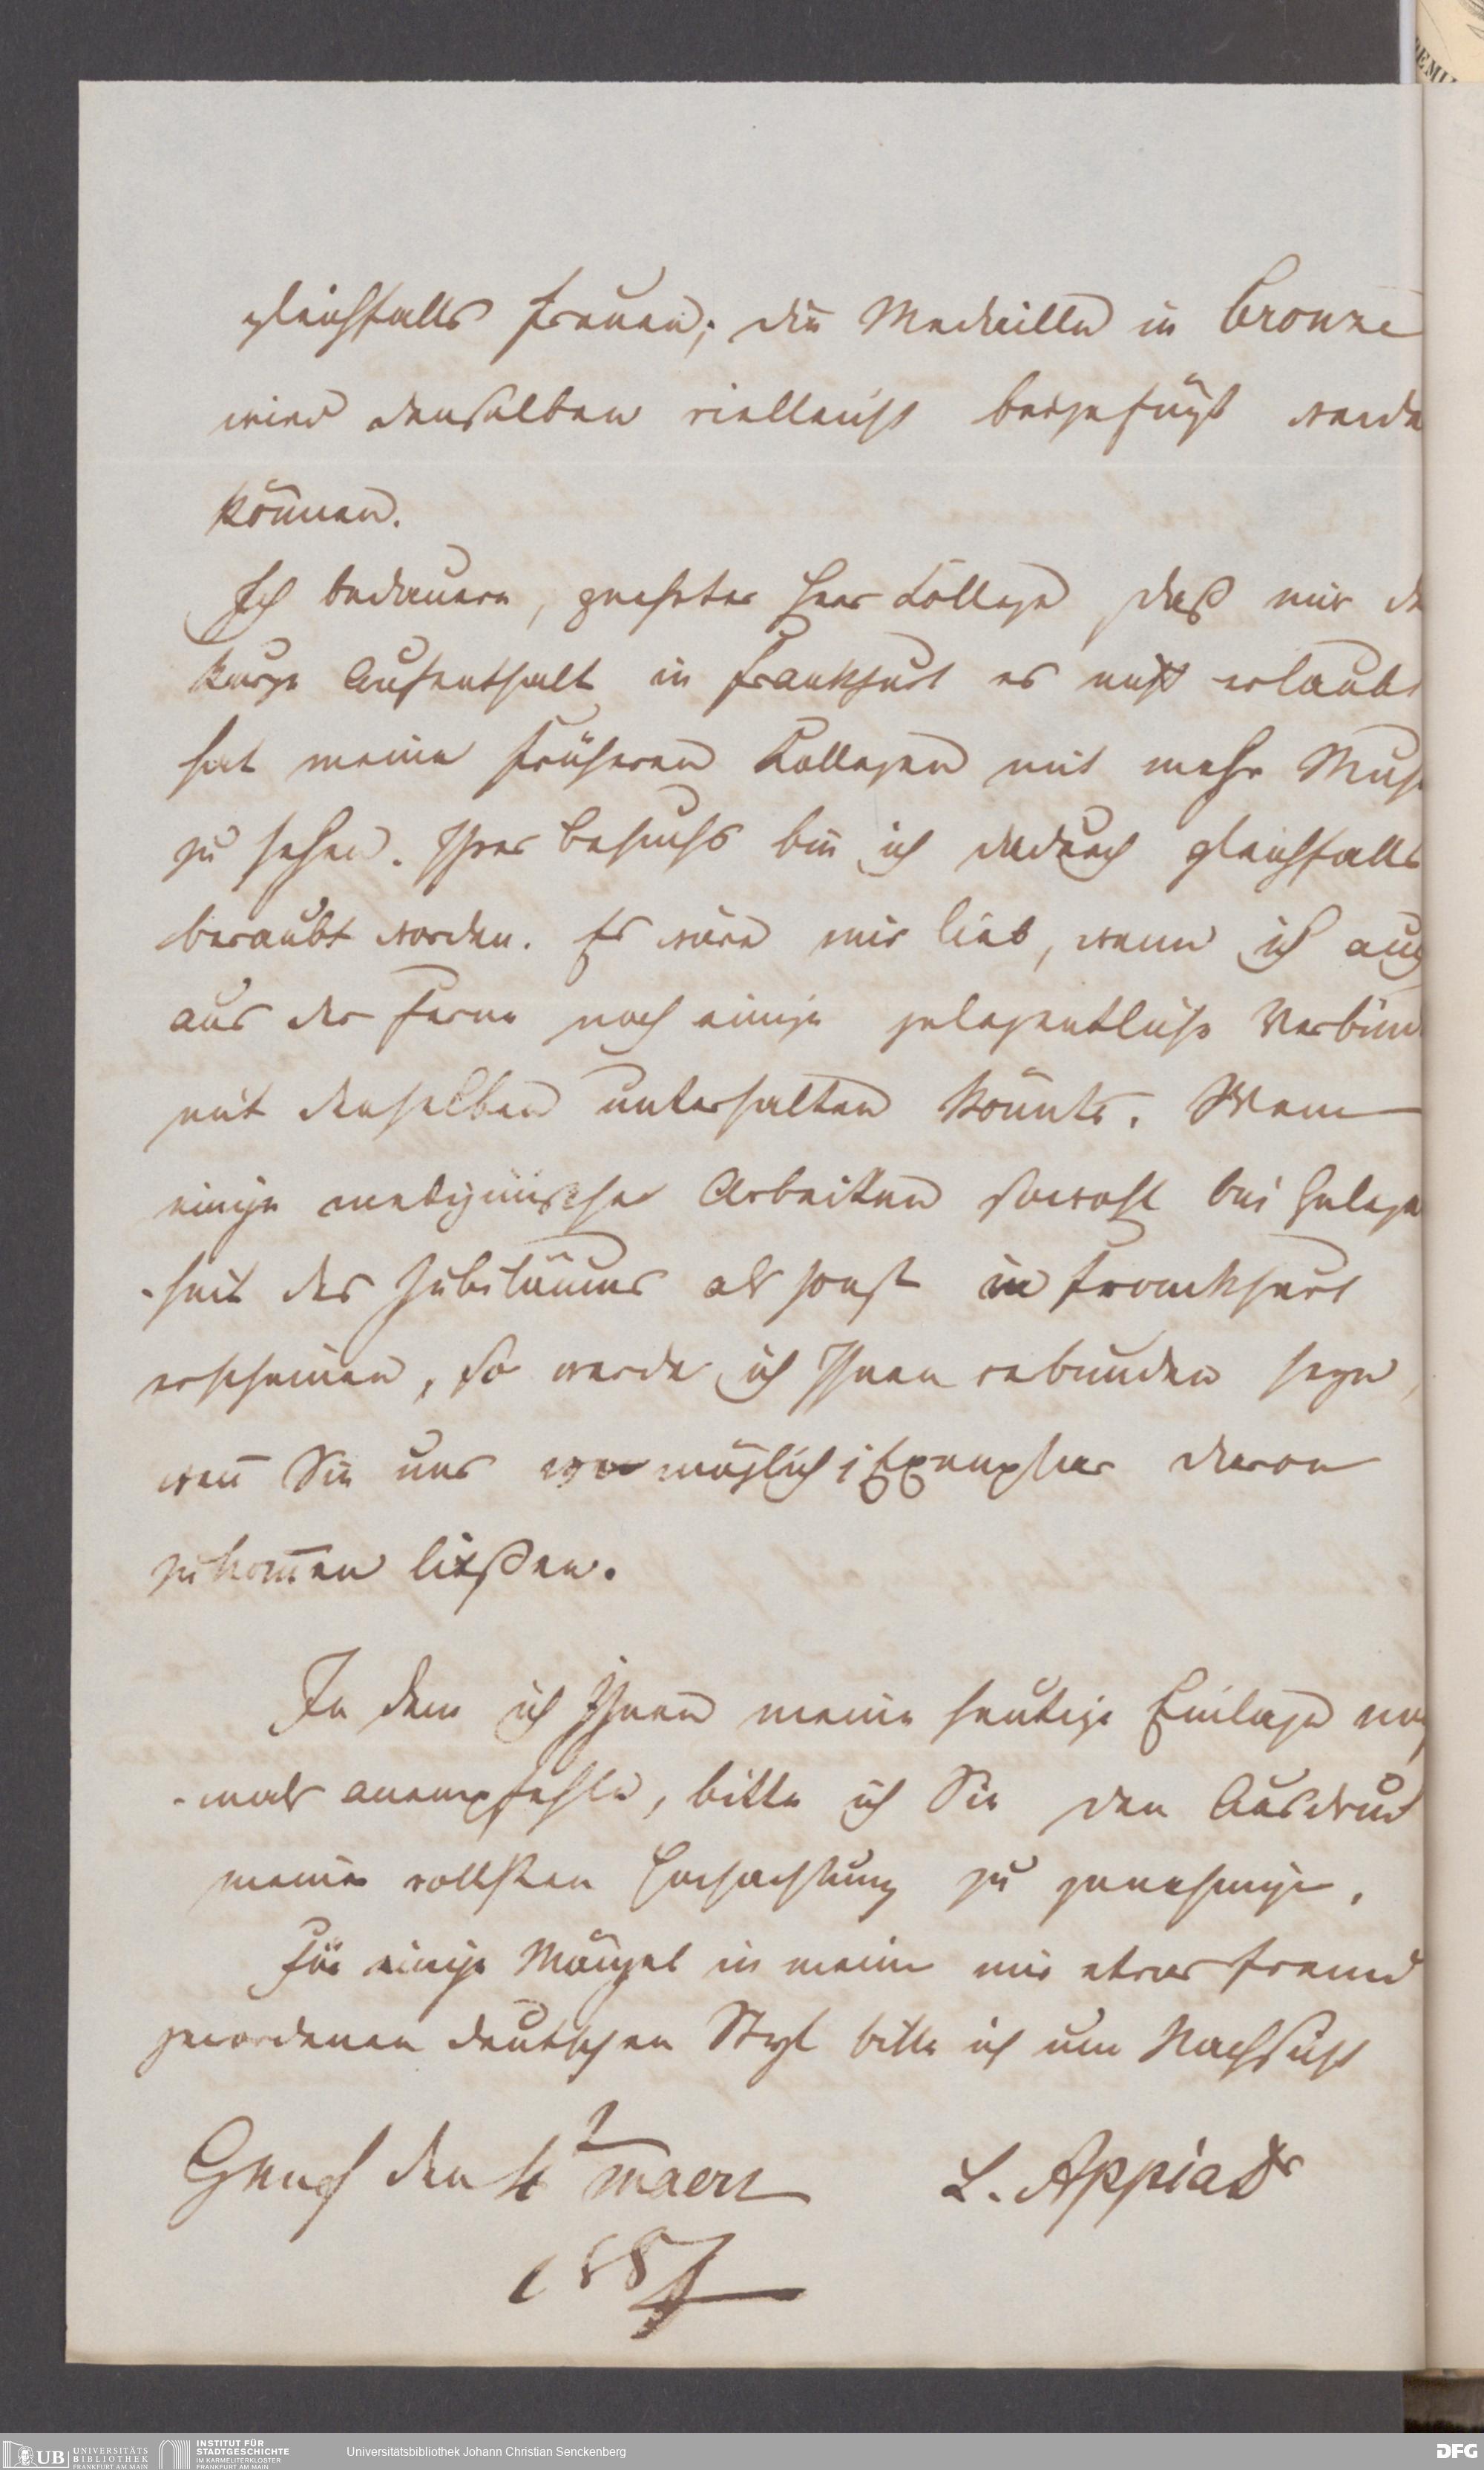 gleichfalls freuen; die Medaille in Bronze
wird denselben vielleicht beigefügt werde
können.
Ich bedauere, geehrter Herr Kollege daß mir de
kurze Aufenthalt in Frankfurt es nicht erlaubt
hat meine früheren Kollegen mit mehr Muse
zu sehen. Ihres Besuchs bin ich dadurch gleichfalls
beraubt worden. Es wäre mir lieb, wenn ich auch
aus der Ferne noch einige gelegentliche Verbind
mit denselben unterhalten könnte. Wenn
einige medizinische Arbeiten sowohl bei Gelegen
-heit des Jubiläums als sonst in Frankfurt
erscheinen, so werde ich Ihnen verbunden seyn,
wen̄ Sie uns wo möglich 1 Exemplar davon
zukom̄en ließen.
In dem ich Ihnen meine heutige Einlage noch
-mals anempfehle, bitte ich Sie den Ausdruck
meiner vollsten Hochachtung zu genehmigen.
Für einige Mängel in meinem mir etwas fremd
gewordenen deutschen Styl bitte ich um Nachsicht
Genf den 4 t maerz L. Appia Dr
1857
UB UNIVERSITÄTS
BIBLIOTHEK
FRANKFURT AM MAIN
INSTITUT FÜR
STADTGESCHICHTE
IM KARMELITERKLOSTER
FRANKFURT AM MAIN
Universitätsbibliothek Johann Christian Senckenberg
DFG